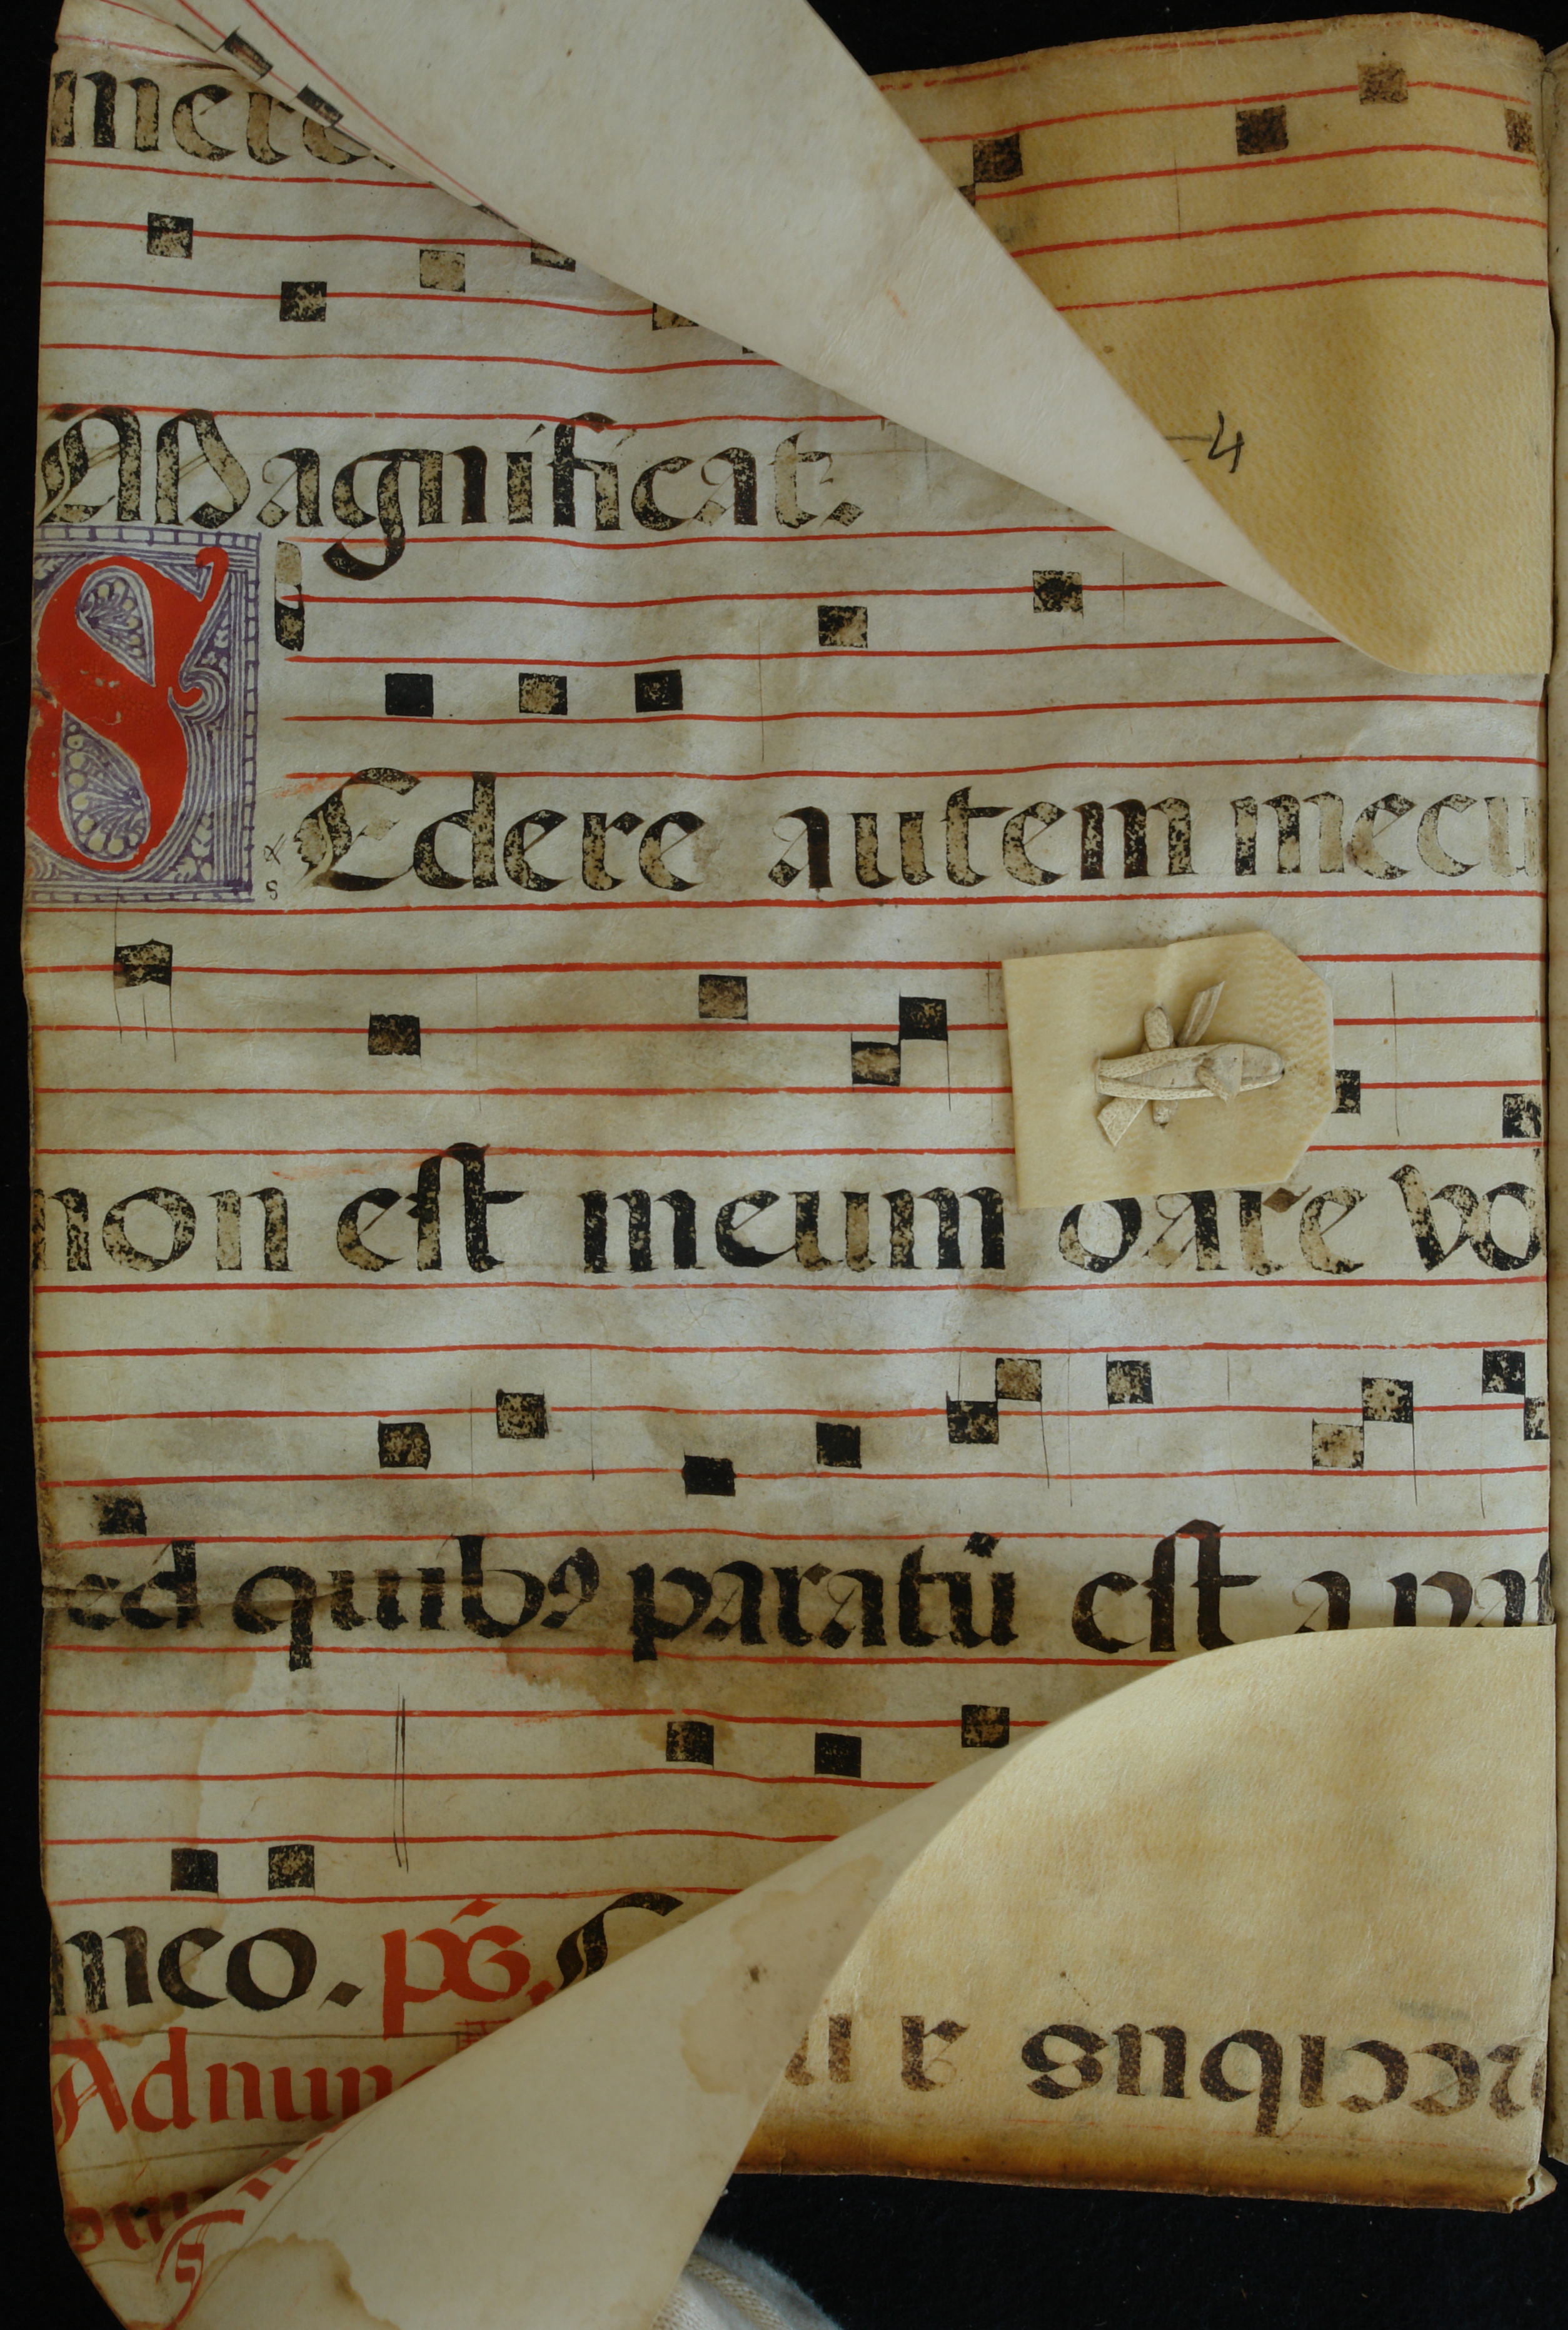 4
Magnificat.
SEdere autem mecu
non est meum dare vo
sed quibꝰ paratū est a pat
meo. ps.
Adnun